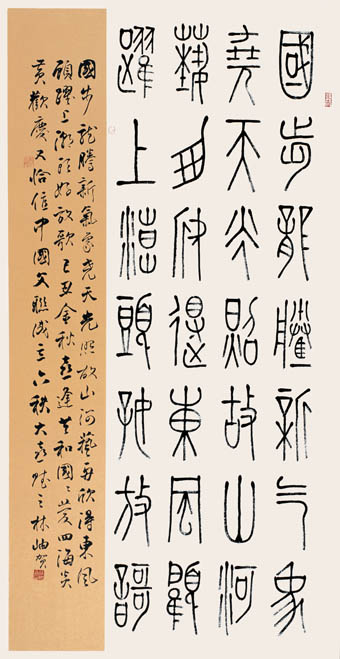 國步龍騰新气象
堯天光照故山河
藝舟欣得東風顧
躍上潮頭好放歌
國步龍騰新氣象堯天光照故山河藝舟欣得東風
顧躍上潮頭好放歌己丑金秋喜逢共和國國慶四海炎
黃歡慶又恰值中國文聯成立六秩大喜賦之林岫賀